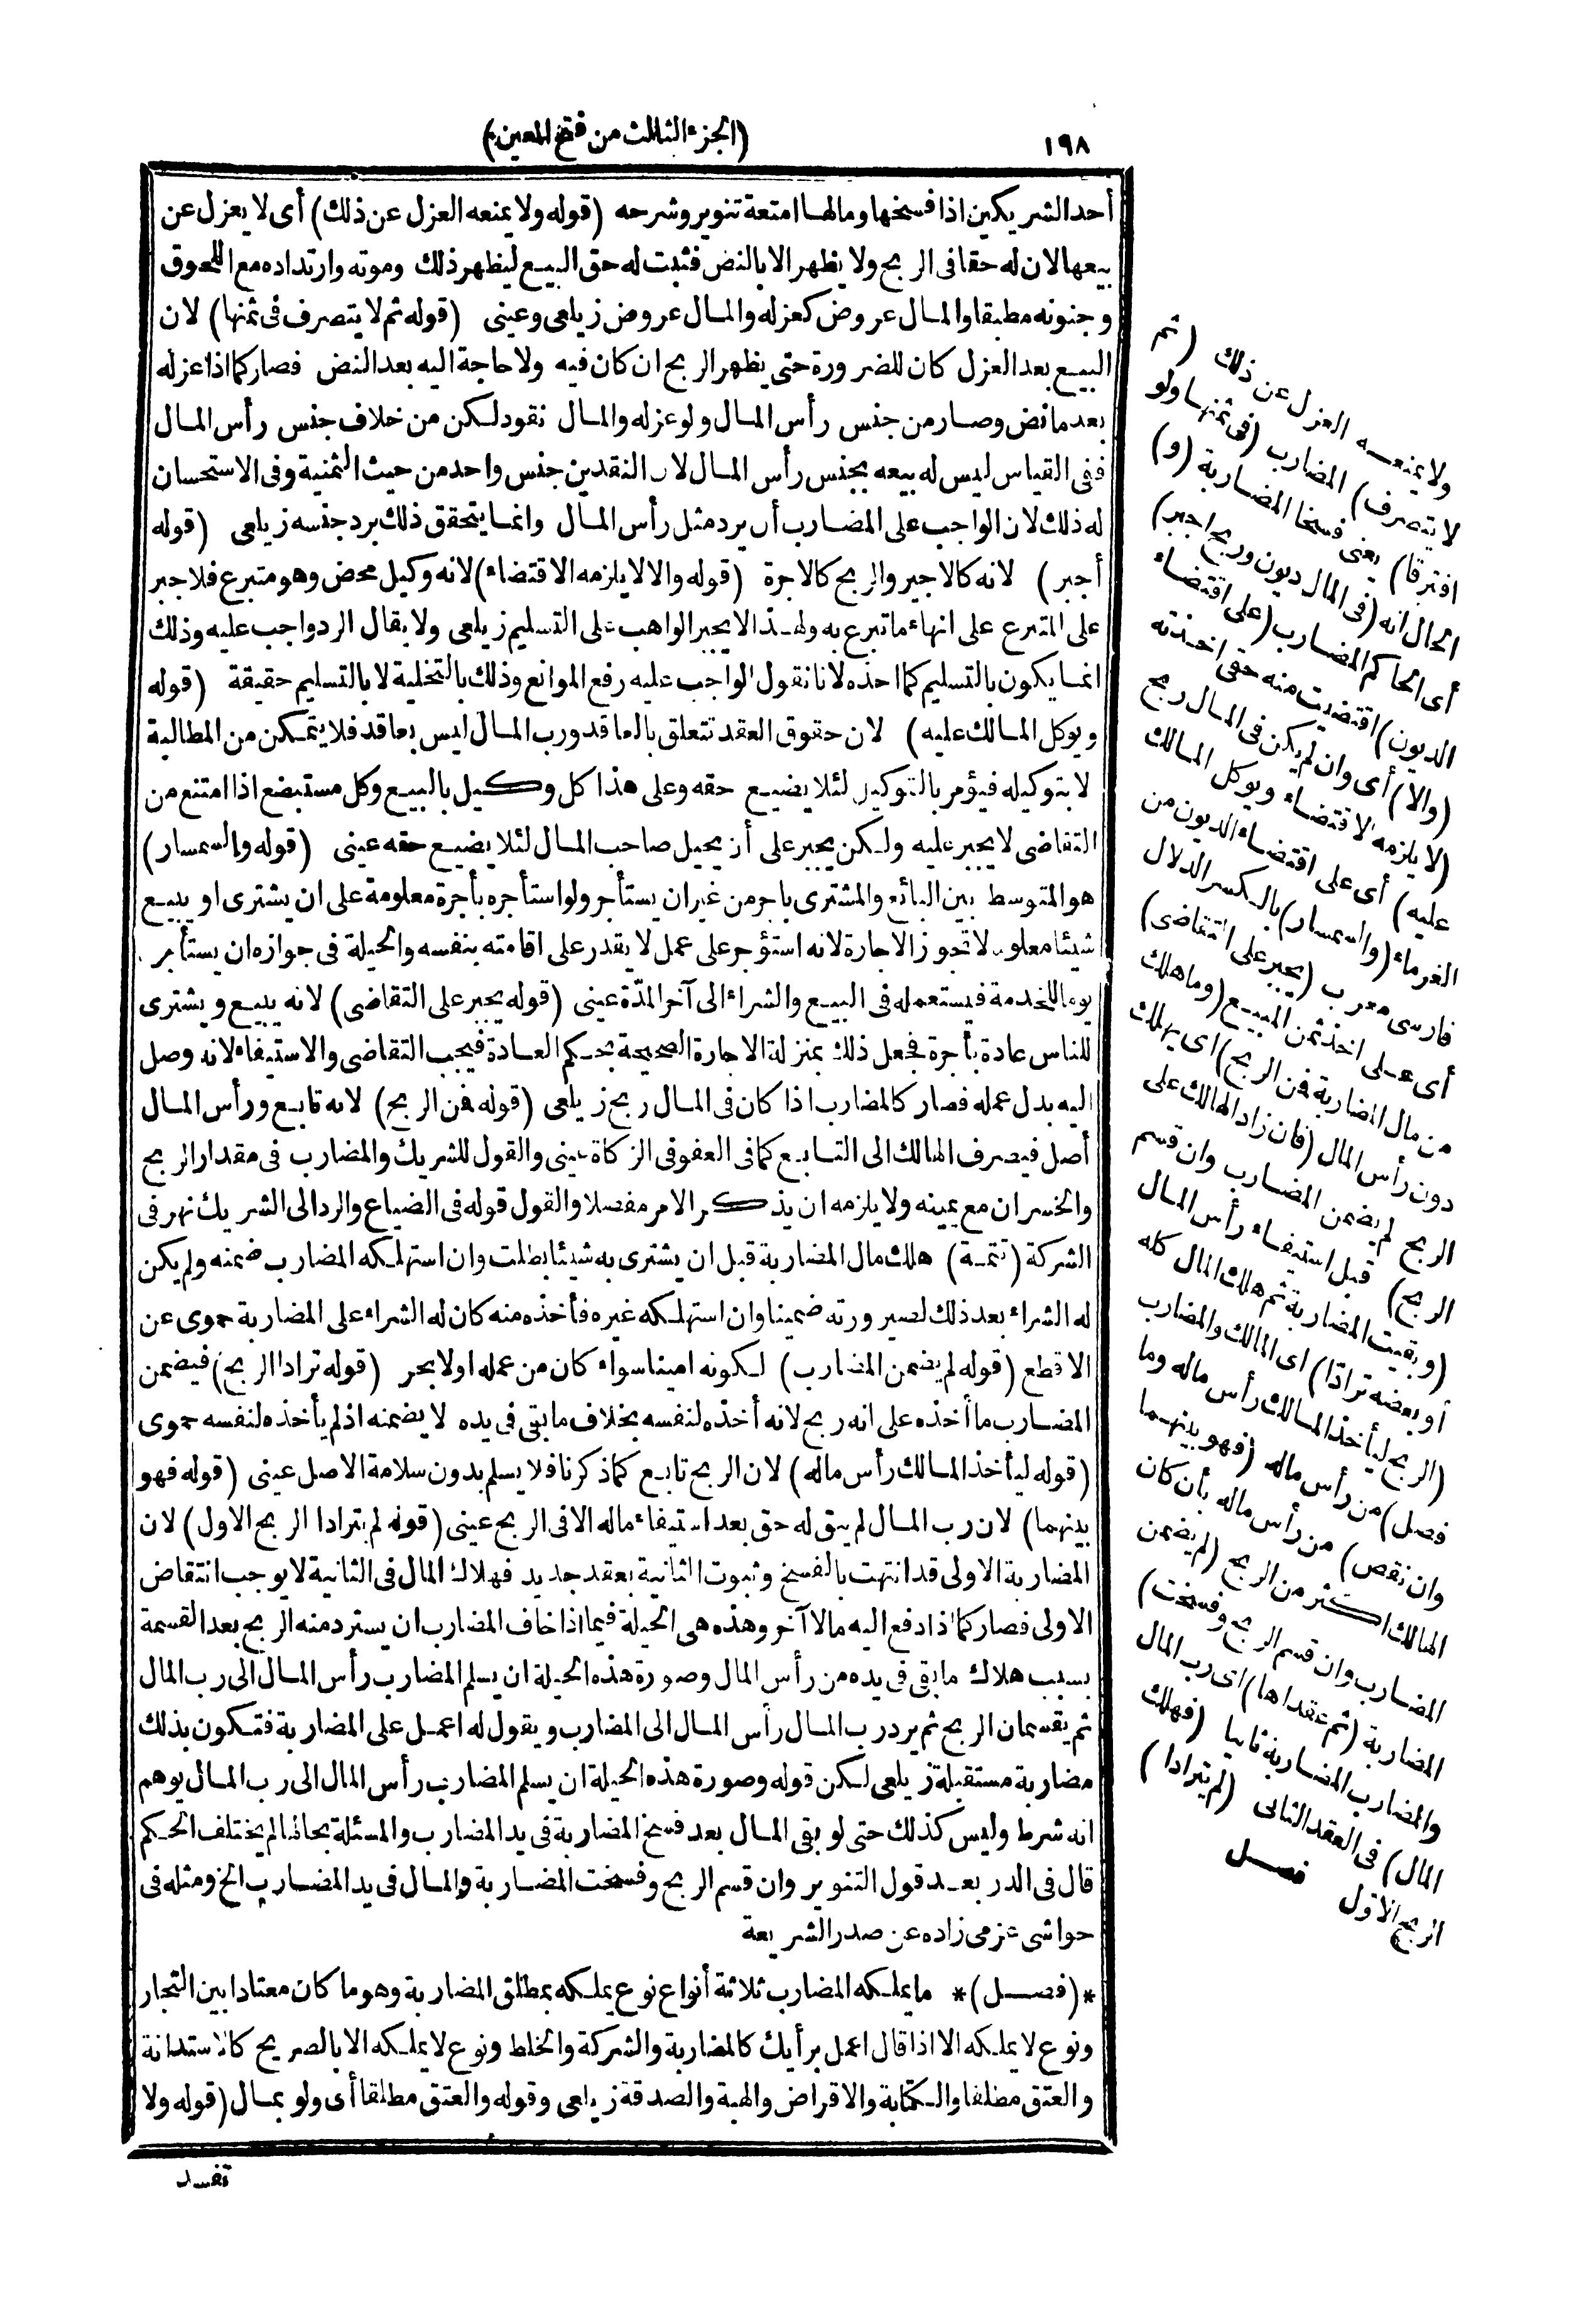 ١٩٨
(الجزء الثالث من فتح المعين)
أحد الشريكين اذا فسخها ومالها امتعة تنوير وشرحه (قوله ولا يمنعه العزل عن ذلك) أى لا يعزل عن
بيعها لان له حقا فى الربح ولا يظهر الا بالنض فثبت له حق البيع ليظهر ذلك وموته وارتداده مع اللحوق
وجنونه مطبقا والمال عروض كعزله والمال عروض زيلعى وعينى (قوله ثم لا يتصرف فى ثمنها) لان
البيع بعد العزل كان للضرورة حتى يظهر الربح ان كان فيه ولا حاجة اليه بعد النض فصار كما اذا عزله
بعد ما نض وصار من جنس رأس المال ولو عزله والمال نقود لكن من خلاف جنس رأس المال
ففى القياس ليس له بيعه بجنس رأس المال لان النقدين جنس واحد من حيث الثمنية وفى الاستحسان
له ذلك لان الواجب على المضارب أن يرد مثل رأس المال وانما يتحقق ذلك برد جنسه زيلعى (قوله
أجبر) لانه كالاجير والربح كالاجرة (قوله والا لا يلزمه الاقتضاء) لانه وكيل محض وهو متبرع فلا جبر
على المتبرع على انهاء ما تبرع به ولهذا لا يجبر الواهب على التسليم زيلعى ولا يقال الرد واجب عليه وذلك
انما يكون بالتسليم كما اخذه لانا نقول الواجب عليه رفع الموانع وذلك بالتخلية لا بالتسليم حقيقة (قوله
ويوكل المالك عليه) لان حقوق العقد تتعلق بالعاقد ورب المال ليس بعاقد فلا يتمكن من المطالبة
لا بتوكيله فيؤمر بالتوكيل لئلا يضيع حقه وعلى هذا كل وكيل بالبيع وكل مستبضع اذا امتنع من
التقاضى لا يجبر عليه ولكن يجبر على أن يحيل صاحب المال لئلا يضيع حقه عينى (قوله والسمسار)
هو المتوسط بين البائع والمشترى باجر من غير ان يستأجر ولو استأجره بأجرة معلومة على ان يشترى او يبيع
شيئا معلوما لا تجوز الاجارة لانه استؤجر على عمل لا يقدر على اقامته بنفسه والحيلة فى جوازه ان يستأجر
يوما للخدمة فيستعمله فى البيع والشراء الى آخر المدة عينى (قوله يجبر على التقاضى) لانه يبيع ويشترى
للناس عادة بأجرة فجعل ذلك بمنزلة الاجارة الصحيحة بحكم العادة فيجب التقاضى والاستيفاء لانه وصل
اليه بدل عمله فصار كالمضارب اذا كان فى المال ربح زيلعى (قوله فمن الربح) لانه تابع ورأس المال
أصل فيصرف الهالك الى التابع كما فى العفو فى الزكاة عينى والقول للشريك والمضارب فى مقدار الربح
والخسران مع يمينه ولا يلزمه ان يذكر الامر مفصلا والقول قوله فى الضياع والرد الى الشريك نهر فى
الشركة (تتمة) هلك مال المضاربة قبل ان يشترى به شيئا بطلت وان استهلكه المضارب ضمنه ولم يكن
له الشراء بعد ذلك لصيرورته ضمينا وان استهلكه غيره فأخذه منه كان له الشراء على المضاربة حموى عن
الاقطع (قوله لم يضمن المضارب) لكونه امينا سواء كان من عمله اولا بحر (قوله ترادا الربح) فيضمن
المضارب ما أخذه على انه ربح لانه أخذه لنفسه بخلاف ما بقى فى يده لا يضمنه اذ لم يأخذه لنفسه حموى
(قوله ليأخذ المالك رأس ماله) لان الربح تابع كما ذكرنا فلا يسلم بدون سلامة الاصل عينى (قوله فهو
بينهما) لان رب المال لم يبق له حق بعد استيفاء ماله الا فى الربح عينى (قوله لم يترادا الربح الاول) لان
المضاربة الاولى قد انتهت بالفسخ وثبوت الثانية بعقد جديد فهلاك المال فى الثانية لا يوجب انتقاض
الاولى فصار كما اذا دفع اليه مالا آخر وهذه هى الحيلة فيما اذا خاف المضارب ان يسترد منه الربح بعد القسمة
بسبب هلاك ما بقى فى يده من رأس المال وصورة هذه الحيلة ان يسلم المضارب رأس المال الى رب المال
ثم يقسمان الربح ثم يرد رب المال رأس المال الى المضارب ويقول له اعمل على المضاربة فتكون بذلك
مضاربة مستقبلة زيلعى لكن قوله وصورة هذه الحيلة ان يسلم المضارب رأس المال الى رب المال يوهم
انه شرط وليس كذلك حتى لو بقى المال بعد فسخ المضاربة فى يد المضارب والمسئلة بحالها لم يختلف الحكم
قال فى الدر بعد قول التنوير وان قسم الربح وفسخت المضاربة والمال فى يد المضارب الخ ومثله فى
حواشى عزمى زاده عن صدر الشريعة
*(فصل)* ما يملكه المضارب ثلاثة أنواع نوع يملكه بمطلق المضاربة وهو ما كان معتادا بين التجار
ونوع لا يملكه الا اذا قال اعمل برأيك كالمضاربة والشركة والخلط ونوع لا يملكه الا بالصريح كالاستدانة
والعتق مطلقا والكتابة والاقراض والهبة والصدقة زيلعى وقوله والعتق مطلقا أى ولو بمال (قوله ولا
تفسد
ولا يمنعه العزل عن ذلك (ثم
لا يتصرف) المضارب (فى ثمنها ولو
افترقا) يعنى فسخا المضاربة (و)
الحال انه (فى المال ديون وربح اجبر)
أى الحاكم المضارب (على اقتضاء
الديون) اقتضيت منه حقى اخذته
(والا) أى وان لم يكن فى المال ربح
(لا يلزمه الاقتضاء ويوكل المالك
عليه) أى على اقتضاء الديون من
الغرماء (والسمسار) بالكسر الدلال
فارسى معرب (يجبر على التقاضى)
أى على اخذ ثمن المبيع (وما هلك
من مال المضاربة فمن الربح) اى يهلك
دون رأس المال (فان زاد الهالك على
الربح لم يضمن المضارب وان قسم
الربح) قبل استيفاء رأس المال
(وبقيت المضاربة ثم هلك المال كله
أو بعضه ترادا) اى المالك والمضارب
(الربح ليأخذ المالك رأس ماله وما
فضل) من رأس ماله (فهو بينهما
وان نقص) من رأس ماله بأن كان
الهالك اكثر من الربح (لم يضمن
المضارب وان قسم الربح وفسخت)
المضاربة (ثم عقداها) اى رب المال
والمضارب المضاربة ثانيا (فهلك
المال) فى العقد الثانى (لم يترادا)
الربح الاول فصل